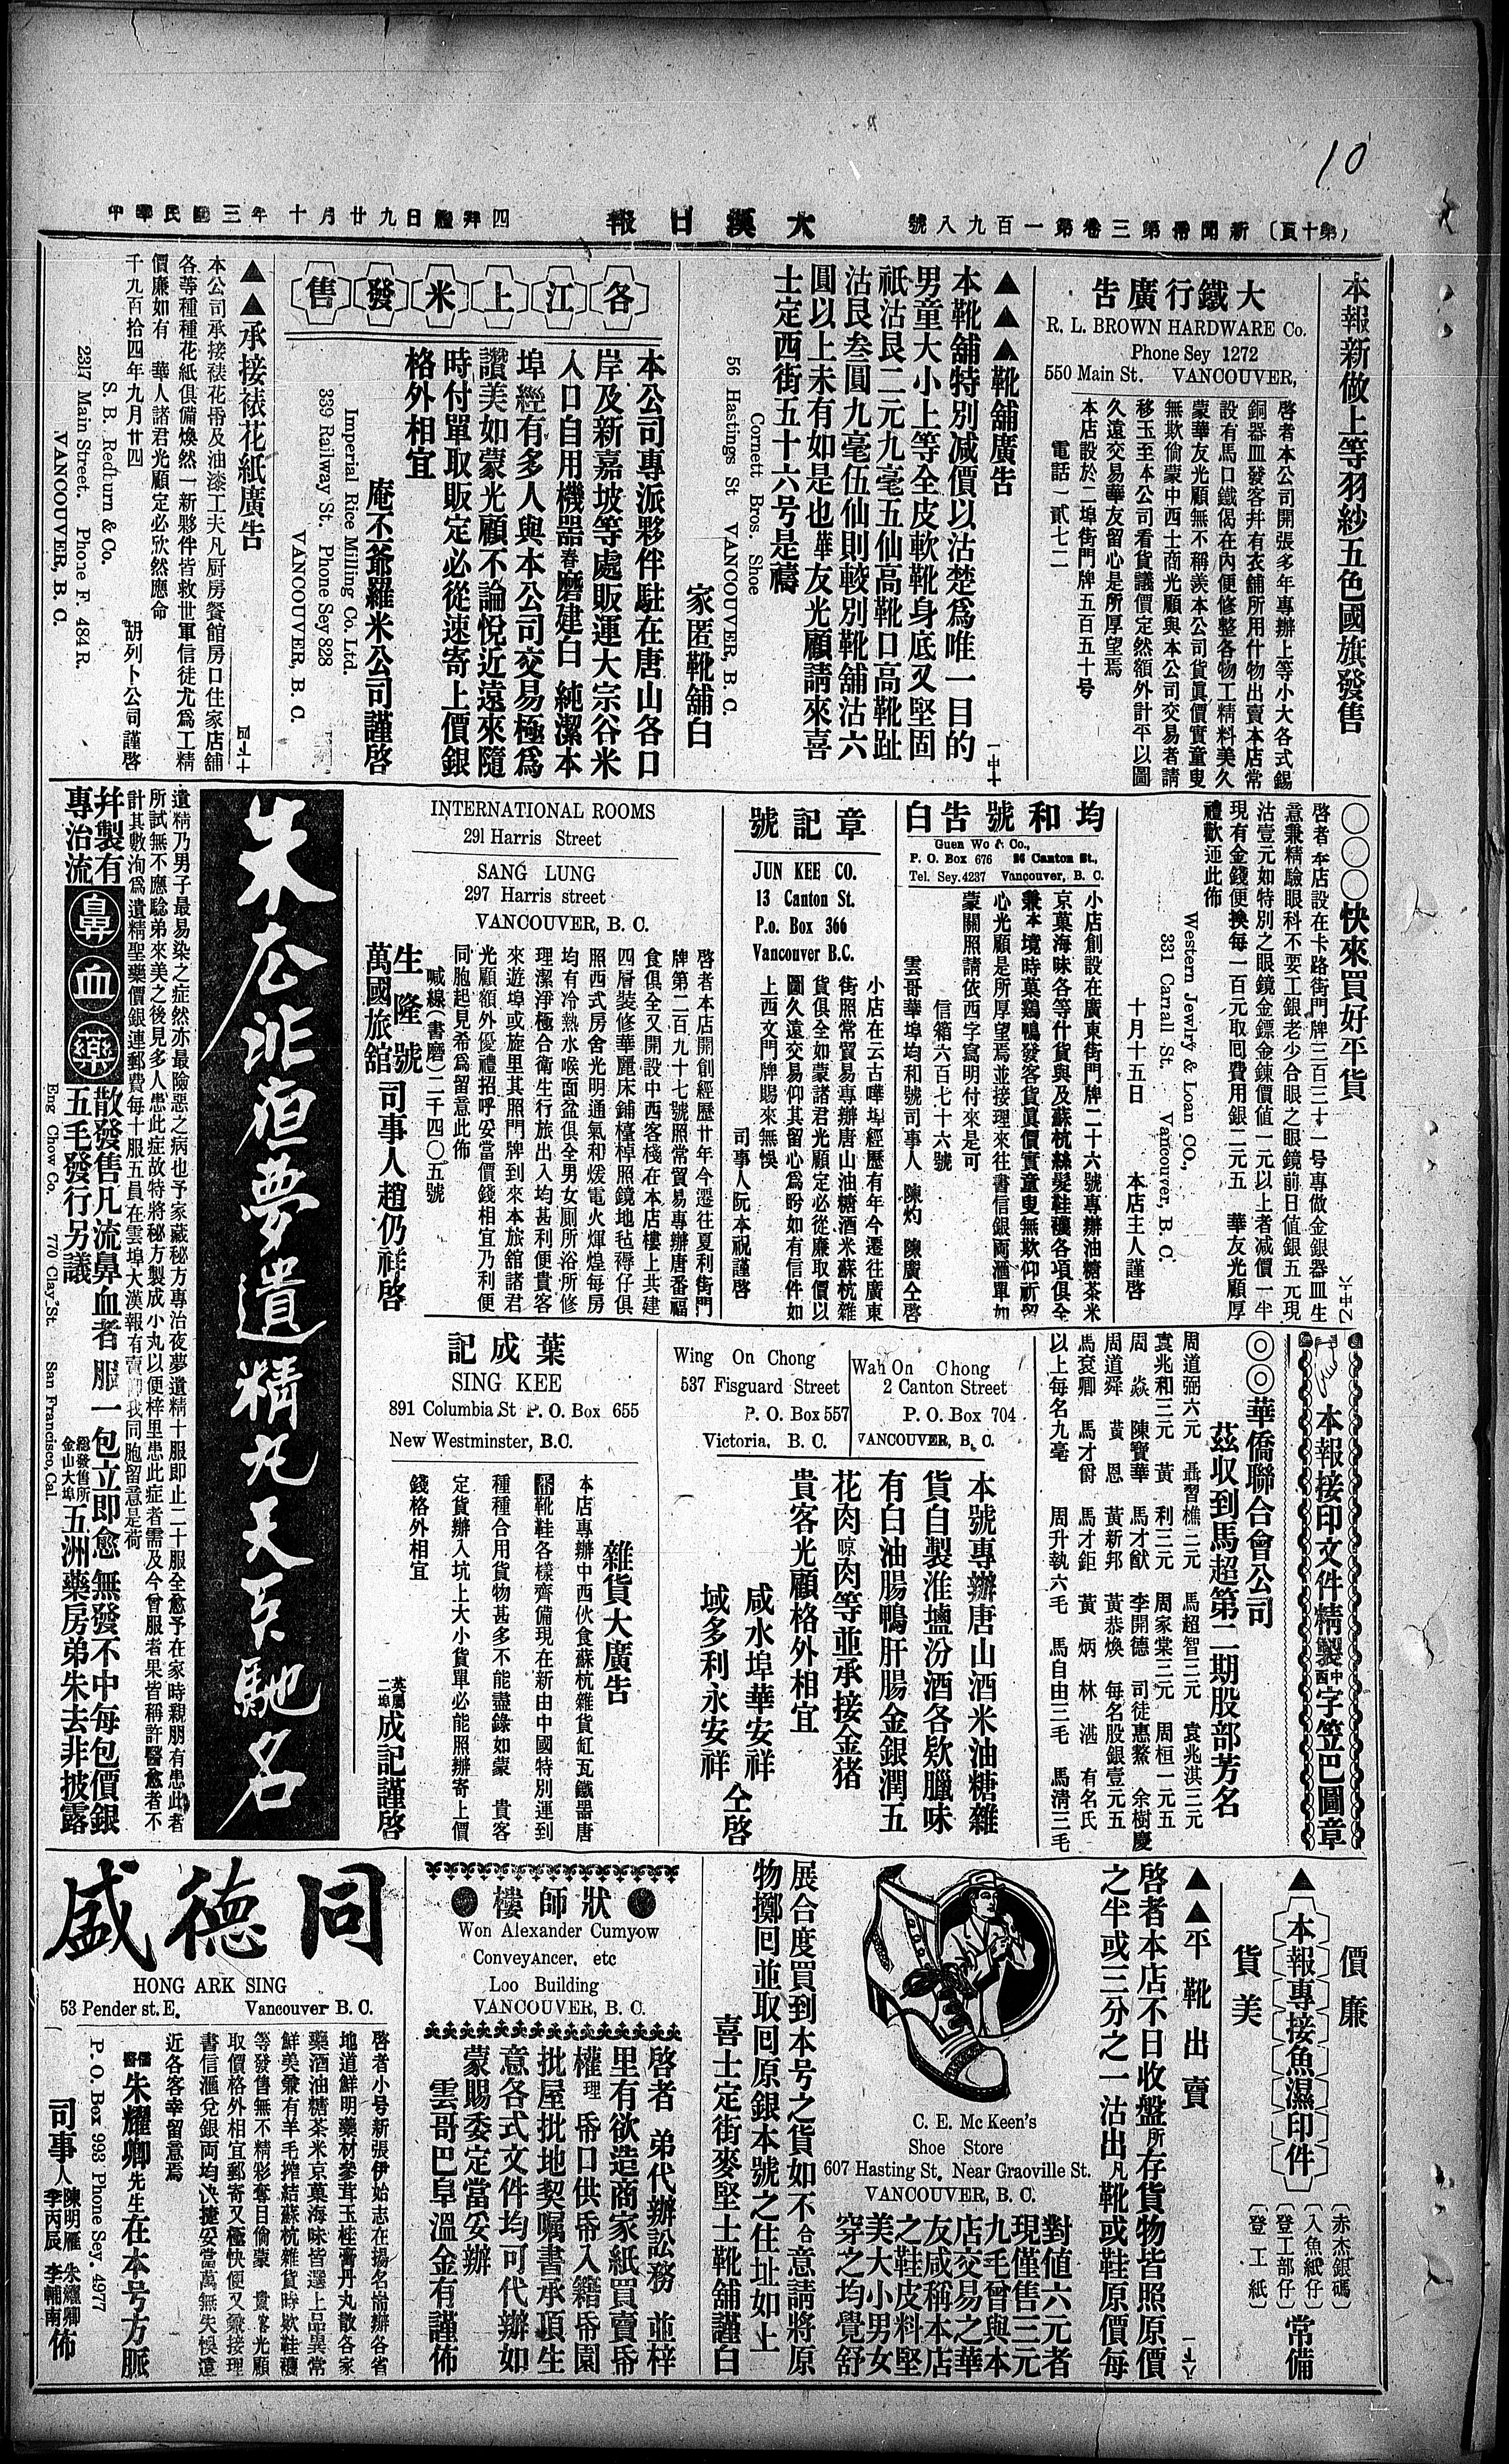 10
（第十頁）新聞帋第三卷第一百九八號
大漢日報
中華民國三年十月廿九日禮拜四
本報新做上等羽紗五色國旗發售
大鐵行廣告
R. L. BROWN HARDWARE Co.
Phone Sey 1272
550 Main St. VANCOUVER,
啓者本公司開張多年專辦上等小大各式錫
銅器血發客幷有衣舖所用什物出賣本店常
設有馬口鐵偈在內便修整各物工精料美久
蒙華友光顧無不稱羨本公司貨眞價實童叟
無欺倘蒙中西士商光顧與本公司交易者請
移玉至本公司看貨議價定然額外計平以圖
久遠交易華友留心是所厚望焉
本店設於二埠街門牌五百五十號
電話一貳七二
▲▲▲靴舖廣告
本靴舖特別減價以沽楚爲唯一目的
男童大小上等全皮軟靴身底又堅固
祇沽艮二元九毫五仙高靴口高靴趾
沽艮叁圓九毫伍仙則較別靴舖沽六
圓以上未有如是也華友光顧請來喜
士定西街五十六号是禱
Cornett Bros. Shoe
56 Hastings St VANCOUVER, B. C.
家匿靴舖白
各江上米發售
本公司專派夥伴駐在唐山各口
岸及新嘉坡等處販運大宗谷米
入口自用機器舂磨建白 純潔本
埠經有多人與本公司交易極爲
讚美如蒙光顧不論悅近遠來隨
時付單取販定必從速寄上價銀
格外相宜
庵丕爺羅米公司謹啓
Imperial Rice Milling Co. Ltd.
339 Railway St. Phone Sey 828
VANCOUVER, B. C.
▲▲承接裱花紙廣告
本公司承接裱花帋及油漆工夫凡厨房餐館房口住家店舖
各等種種花紙俱備煥然一新夥伴皆救世軍信徒尤爲工精
價廉如有 華人諸君光顧定必欣然應命
千九百拾四年九月廿四
胡列卜公司謹啓
S. B. Redburn & Co.
2317 Main Street. Phone F. 484 R.
VANCOUVER, B. C.
〇〇〇快來買好平貨
啓者本店設在卡路街門牌三百三十一号專做金銀器皿生
意兼精驗眼科不要工銀老少合眼之眼鏡前日值銀五元現
沽壹元如特別之眼鏡金鏢金鍊價值一元以上者減價一半
現有金錢便換每一百元取囘費用銀二元五 華友光顧厚
禮歡迎此佈
Western Jewlry & Loan CO.,
331 Carrall St. Vancouver, B. C.
十月十五日 本店主人謹啓
均和號告白
Guen Wo & Co.,
P. O. Box 676 26 Canton St.,
Tel. Sey.4237 Vancouver, B. C.
小店創設在廣東街門牌二十六號專辦油糖茶米
京菓海味各等什貨與及蘇杭絲髮鞋襪各項俱全
兼本境時菓鷄鴨發客貨眞價實童叟無欺仰祈留
心光顧是所厚望焉並接理來往書信銀兩滙單如
蒙關照請依西字寫明付來是可
信箱六百七十六號
雲哥華埠均和號司事人 陳灼 陳廣仝啓
章記號
JUN KEE CO.
13 Canton St.
P.o. Box 366
Vancouver B.C.
小店在云古嘩埠經歷有年今遷往廣東
街照常貿易專辦唐山油糖酒米蘇杭雜
貨俱全如蒙諸君光顧定必從廉取價以
圖久遠交易仰其留心爲盼如有信件如
上西文門牌賜來無悞
司事人阮本祝謹啓
INTERNATIONAL ROOMS
291 Harris Street
SANG LUNG
297 Harris street
VANCOUVER, B. C.
啓者本店開創經歷廿年今遷往夏利街門
牌第二百九十七號照常貿易專辦唐番福
食俱全又開設中西客棧在本店樓上共建
四層裝修華麗床鋪檯椅照鏡地毡褥仔俱
照西式房舍光明通氣和煖電火煇煌每房
均有冷熱水喉面盆俱全男女厠所浴所修
理潔淨極合衛生行旅出入均甚利便貴客
來遊埠或旋里其照門牌到來本旅舘諸君
光顧額外優禮招呼妥當價錢相宜乃利便
同胞起見希爲留意此佈
喊線（書磨）二千四〇五號
生隆號
萬國旅舘
司事人趙仍祥啓
朱広非疸夢遺精丸天下馳名
遺精乃男子最易染之症然亦最險惡之病也予家藏秘方專治夜夢遺精十服即止二十服全愈予在家時親朋有患此者
所試無不應騐弟來美之後見多人患此症故特將秘方製成小丸以便梓里患此症者需及今曾服者果皆稱許醫愈者不
計其數洵爲遺精聖藥價銀連郵費每十服五員在雲埠大漢報有賣我同胞留意是荷
幷製有
專治流
鼻血藥
散發售凡流鼻血者服一包立即愈無發不中每包價銀
五毛發行另議
總發售所
金山大埠
五洲藥房弟朱去非披露
Eng Chow Co. 770 Clay St. San Francisco, Cal.
本報接印文件精製中西字笠巴圖章
◎◎華僑聯合會公司
茲收到馬超第二期股部芳名
周道弼六元 聶習樵二元 馬超智三元 袁兆淇三元
袁兆和三元 黃 利三元 周家棠三元 周桓一元五
周 焱 陳寶華 馬才猷 李開德 司徒惠鰲 余樹慶
周道舜 黃 恩 黃新邦 黃恭煥 每名股銀壹元五
馬袞卿 馬才爵 馬才鉅 黃 炳 林 湛 有名氏
以上每名九毫 周升執六毛 馬自由三毛 馬清三毛
Wing On Chong
537 Fisguard Street
P. O. Box 557
Victoria, B. C.
Wah On Chong
2 Canton Street
P. O. Box 704
VANCOUVER, B. C.
本號專辦唐山酒米油糖雜
貨自製淮鹽汾酒各欵臘味
有白油腸鴨肝腸金銀潤五
花肉晾肉等並承接金猪
貴客光顧格外相宜
咸水埠華安祥
域多利永安祥
仝啓
葉成記
SING KEE
891 Columbia St P. O. Box 655
New Westminster, B.C.
雜貨大廣告
本店專辦中西伙食蘇杭雜貨缸瓦鐵器唐
靴鞋各樣齊備現在新由中國特別運到
種種合用貨物甚多不能盡錄如蒙 貴客
定貨辦入坑上大小貨單必能照辦寄上價
錢格外相宜
英屬
二埠
成記謹啓
價廉
▲本報專接魚濕印件
貨美
〔赤杰銀碼〕
〔入魚紙仔〕
〔登工部仔〕
〔登工紙〕
常備
▲▲平靴出賣
啓者本店不日收盤所存貨物皆照原價
之半或三分之一沽出凡靴或鞋原價每
C. E. Mc Keen's
Shoe Store
607 Hasting St. Near Graoville St.
VANCOUVER, B. C.
對値六元者
現僅售三元
九毛曾與本
店交易之華
友咸稱本店
之鞋皮料堅
美大小男女
穿之均覺舒
展合度買到本号之貨如不合意請將原
物擲囘並取囘原銀本號之住址如上
喜士定街麥堅士靴舖謹白
狀師樓
Won Alexander Cumyow
ConveyAncer, etc
Loo Building
VANCOUVER, B. C.
啓者 弟代辦訟務 並梓
里有欲造商家紙買賣帋
權理 帋口供帋入籍帋園
批屋批地契嘱書承頂生
意各式文件均可代辦如
蒙賜委定當妥辦
雲哥巴阜溫金有謹佈
同德盛
HONG ARK SING
53 Pender st. E. Vancouver B. C.
啓者小号新張伊始志在揚名耑辦各省
地道鮮明藥材參茸玉桂膏丹丸散各家
藥酒油糖茶米京菓海味皆選上品異常
鮮美兼有羊毛搾結蘇杭雜貨時欵鞋襪
等發售無不精彩奪目倘蒙 貴客光顧
取價格外相宜郵寄又極快便又兼接理
書信滙兌銀両均快捷妥當萬無失悞遠
近各客幸留意焉
儒醫朱耀卿先生在本号方脈
P. O. Box 993 Phone Sey. 4977
司事人 陳明雁 朱耀卿 李丙辰 李輔南 佈